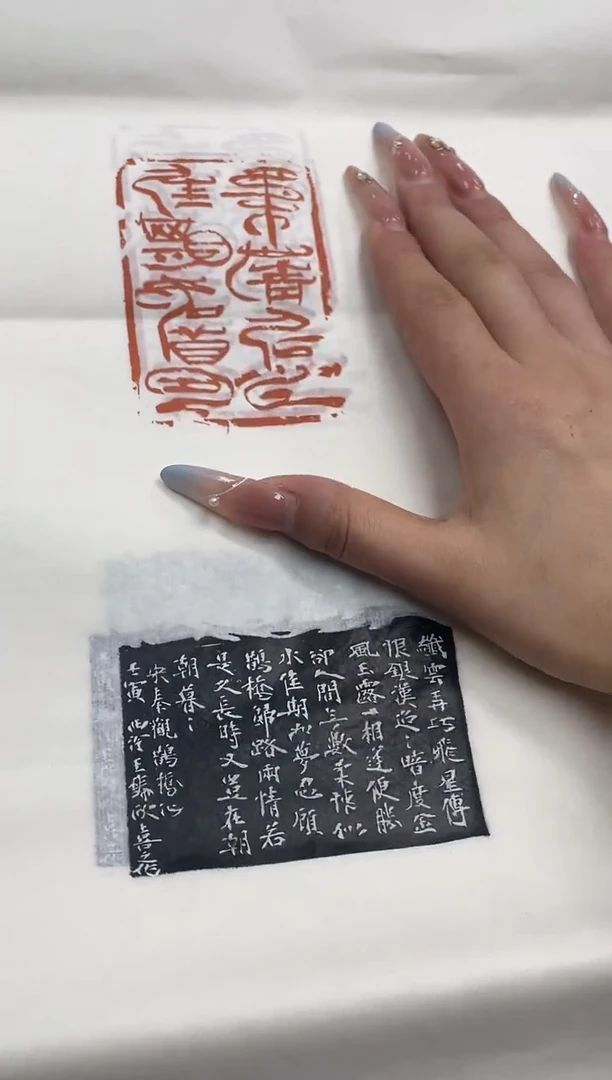 柔情似水
佳期如夢
纖雲弄巧飛星傳
恨銀漢迢〻暗度金
風玉露一相逢便勝
卻人間無數柔情似
水佳期如夢忍顧
鵲橋歸路兩情若
是久長時又豈在朝
朝暮〻
宋秦觀鵲橋仙
壬寅 喜之作